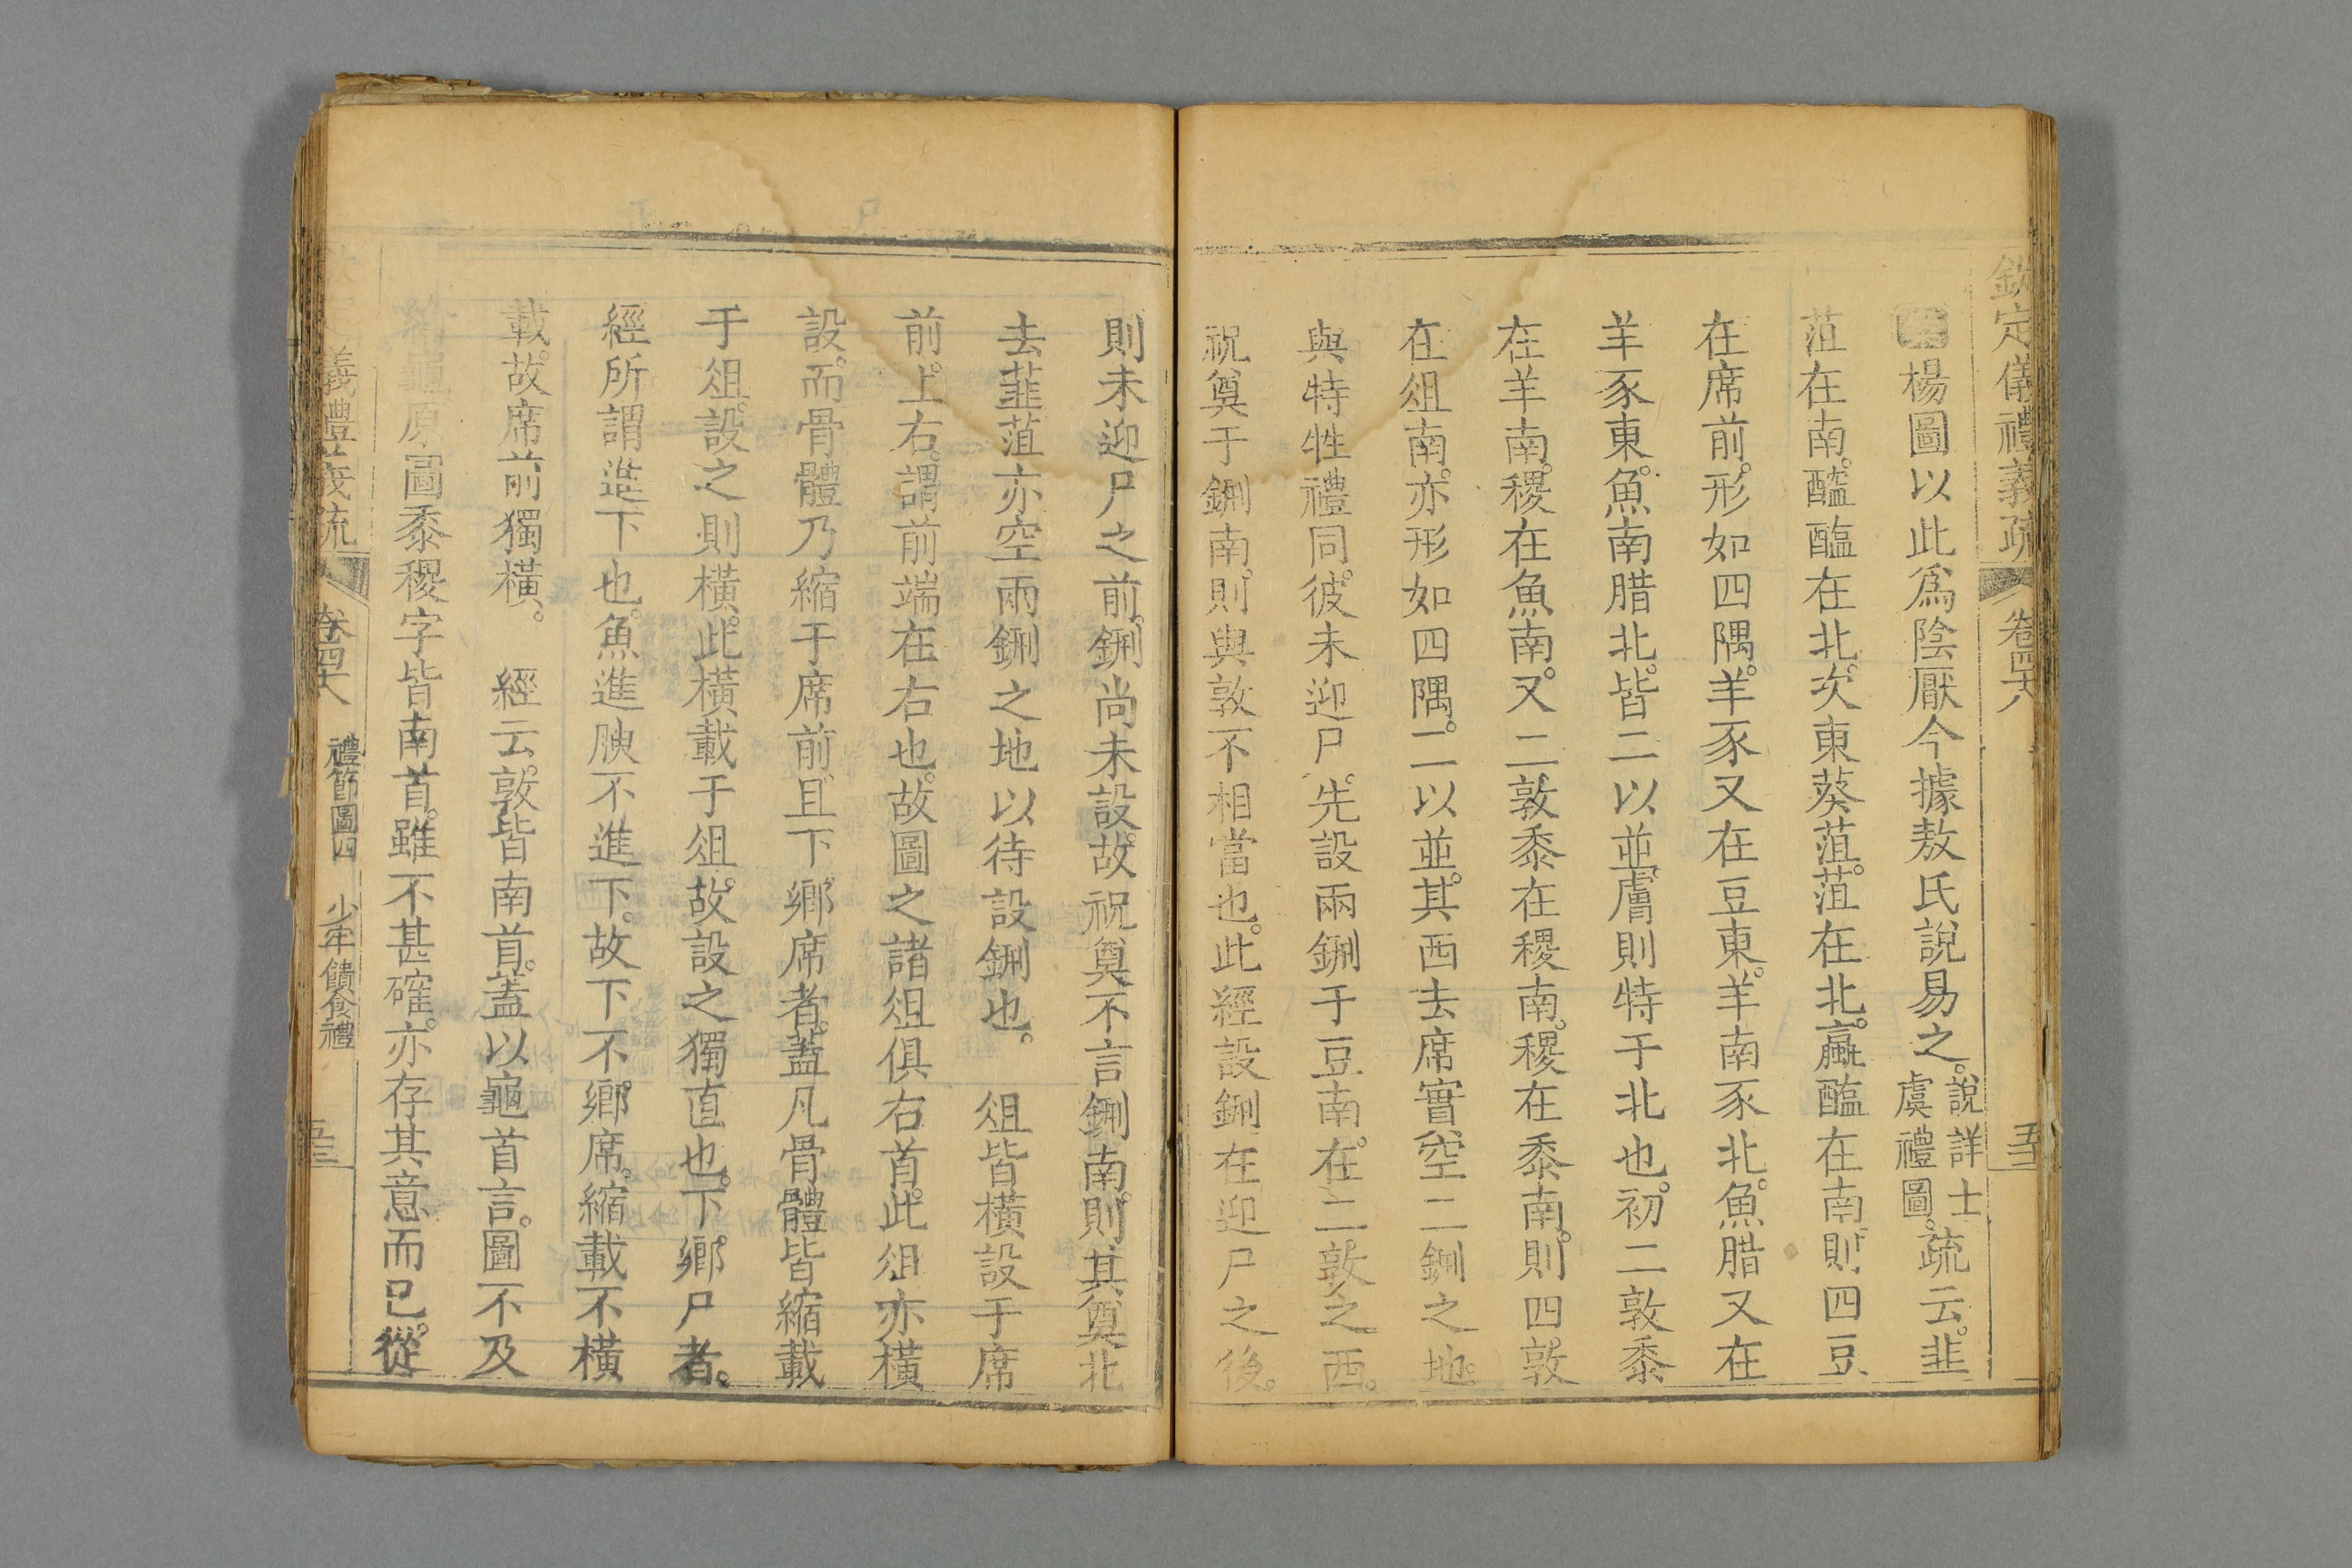 欽定儀禮義疏 卷四十八 五十三
楊圖以此爲陰厭今據敖氏說易之。說詳士虞禮圖。疏云。韭
菹在南。醓醢在北。次東葵菹。菹在北。蠃醢在南。則四豆
在席前。形如四隅。羊豕又在豆東。羊南豕北。魚腊又在
羊豕東。魚南腊北。皆二以並。膚則特于北也。初二敦黍
在羊南。稷在魚南。又二敦黍在稷南。稷在黍南。則四敦
在俎南。亦形如四隅。二以並。其西去席實空二鉶之地。
與特牲禮同。彼未迎尸。先設兩鉶于豆南。在二敦之西。
祝奠于鉶南。則與敦不相當也。此經設鉶在迎尸之後。
則未迎尸之前。鉶尚未設。故祝奠不言鉶南。則其奠北
去韮菹亦空兩鉶之地以待設鉶也。 俎皆橫設于席
前。上右。謂前端在右也。故圖之諸俎俱右首。此俎亦橫
設。而骨體乃縮于席前。且下鄉席者。蓋凡骨體皆縮載
于俎。設之則橫。此橫載于俎。故設之獨直也。下鄉尸者。
經所謂進下也。魚進腴不進下。故下不鄉席。縮載不橫
載。故席前獨橫。 經云。敦皆南首。蓋以龜首言。圖不及
龜原圖黍稷字皆南首。雖不甚確。亦存其意而已。從
義禮義疏 卷四十八 禮節圖四 少牢饋食禮 五十三